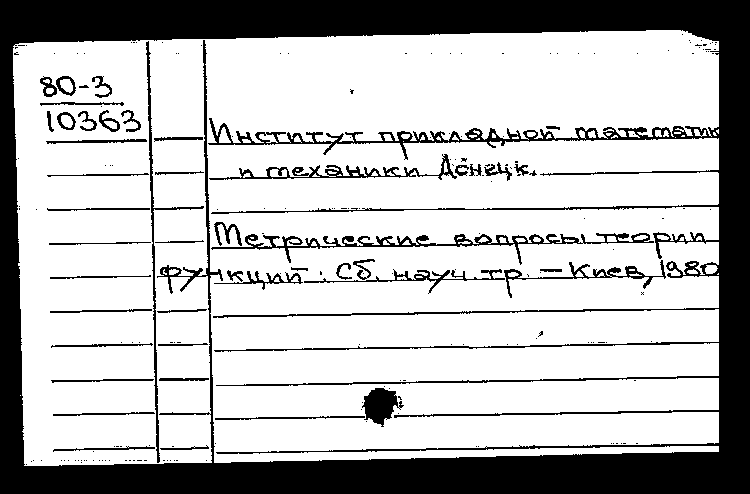 80-3
10363
Институт прикладной математик
и механики Донецк.
Метрические вопросы теории
функций: Сб. науч. тр. — Киев, 1980